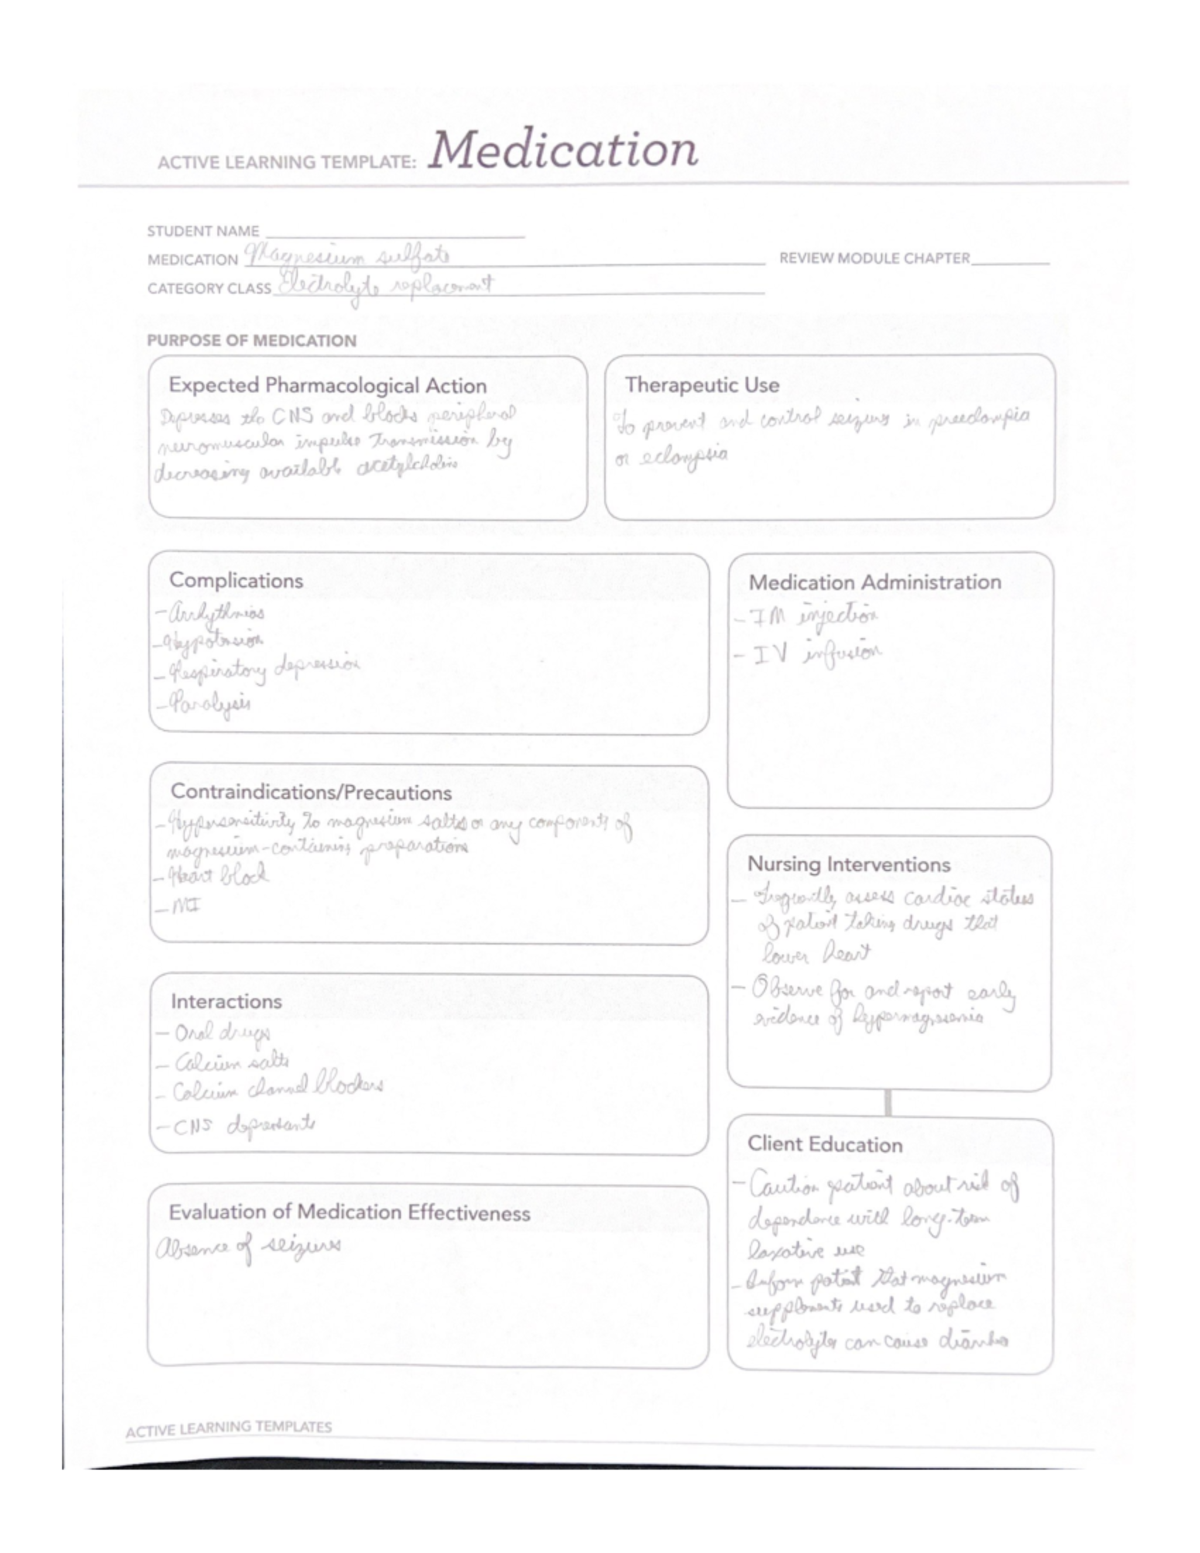 ACTIVE LEARNING TEMPLATE: Medication
STUDENT NAME
MEDICATION Magnesium sulfate
REVIEW MODULE CHAPTER
CATEGORY CLASS Electrolyte replacement
PURPOSE OF MEDICATION
Expected Pharmacological Action
Depresses the CNS and blocks peripheral
neuromuscular impulse transmission by
decreasing available acetylcholine
Therapeutic Use
To prevent and control seizures in preeclampsia
or eclampsia
Complications
- Arrhythmias
- Hypotension
- Respiratory depression
- Paralysis
Medication Administration
- IM injection
- IV infusion
Contraindications/Precautions
- Hypersensitivity to magnesium salts or any components of
magnesium-containing preparations
- Heart block
- MI
Nursing Interventions
- Frequently assess cardiac status
of patient taking drugs that
lower heart
- Observe for and report early
evidence of hypermagnesemia
Interactions
- Oral drugs
- Calcium salts
- Calcium channel blockers
- CNS depressants
Client Education
- Caution patient about risk of
dependence with long-term
laxative use
- Inform patient that magnesium
supplements used to replace
electrolytes can cause diarrhea
Evaluation of Medication Effectiveness
Absence of seizures
ACTIVE LEARNING TEMPLATES